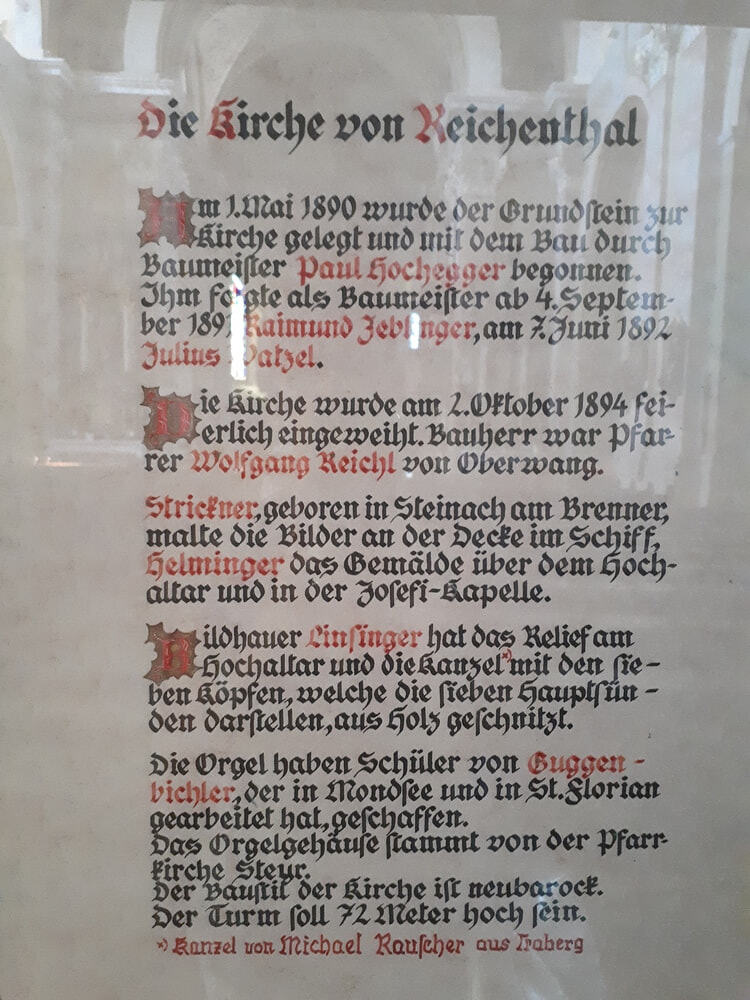 Die Kirche von Reichenthal
Am 1. Mai 1890 wurde der Grundstein zur
Kirche gelegt und mit dem Bau durch
Baumeister Paul Hochegger begonnen.
Ihm folgte als Baumeister ab 4. Septem-
ber Raimund Jeblinger, am 7. Juni 1892
Julius
Die Kirche wurde am 2. Oktober 1894 fei-
erlich eingeweiht. Bauherr war Pfar-
rer Wolfgang Reichl von Oberwang.
Strickner, geboren in Steinach am Brenner,
malte die Bilder an der Decke im Schiff,
Helminger das Gemälde über dem Hoch-
altar und in der Josefi-Kapelle.
Bildhauer Linsinger hat das Relief am
Hochaltar und die Kanzel *) mit den sie-
ben Köpfen, welche die sieben Hauptsün-
den darstellen, aus Holz geschnitzt.
Die Orgel haben Schüler von Guggen-
bichler, der in Mondsee und in St. Florian
gearbeitet hat, geschaffen.
Das Orgelgehäuse stammt von der Pfarr-
kirche Steyr.
Der Baustil der Kirche ist neubarock.
Der Turm soll 72 Meter hoch sein.
*) Kanzel von Michael Rauscher aus